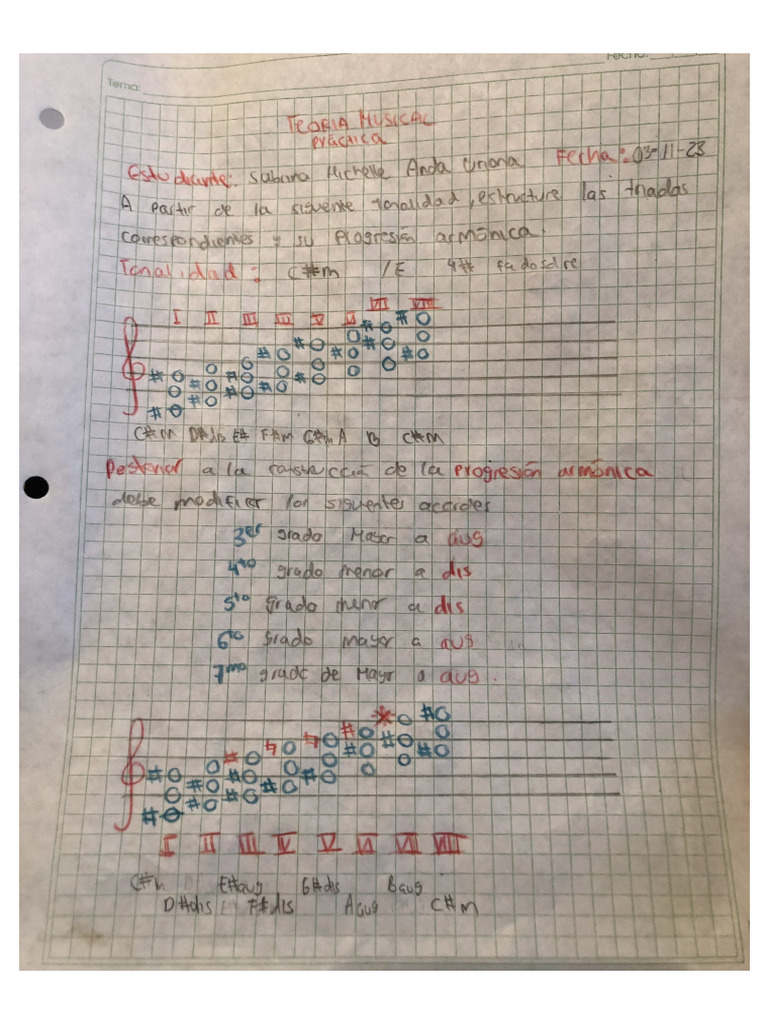 Fecha:
Tema:
TEORIA MUSICAL
Práctica
Estudiante: Sabina Michelle Anda Fecha: 03-11-23
A partir de la siguente tonalidad, estructure las triadas
correspondientes y su Progresión armónica.
Tonalidad: C#m /E 4# fa do sol re
I II III IIII V VI VII VIII
C#m D#dis E# F#m G#m A B C#m
Posterior a la construcción de la progresión armónica
debe modificar los siguentes acordes
3er grado Mayor a aug
4to grado menor a dis
5to grado menor a dis
6to grado mayor a aug
7mo grado de Mayor a aug.
I II III IV V VI VII VIII
C#m E#aug G#dis Baug
D#dis F#dis Aaug C#m